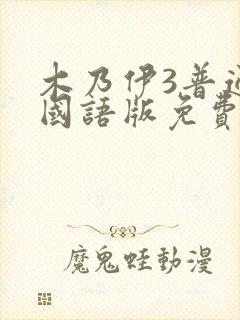 木乃伊3普通
國語版免費
魔鬼蛙動漫